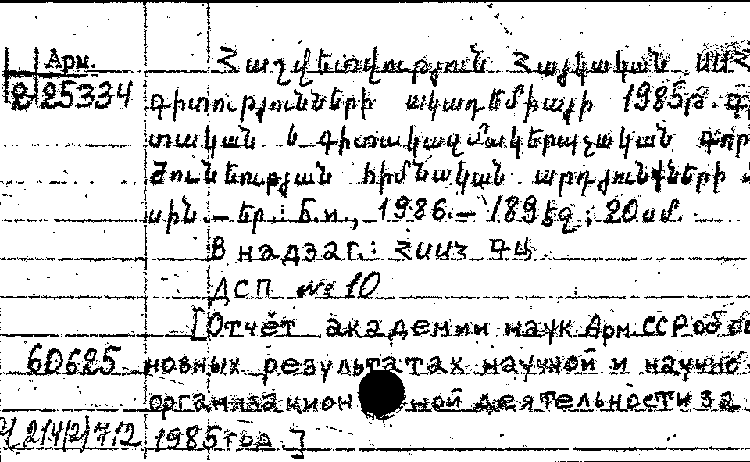 Арм.
Հաշվետվություն Հայկական ՍՍՀ
2 25334 գիտությունների ակադեմիայի 1985թ. գի
տական և գիտակազմակերպչական գոր
ծունեության հիմնական արդյունքների
սին. – Եր.: Б.и., 1986. – 189 էջ; 20 սմ.
В надзаг.: ՀՍՍՀ ԳԱ
ДСП № 10
[Отчёт академии наук Арм.ССР об ос
60625 новных результатах научной и научно
организацион ной деятельности за
1985 год.]